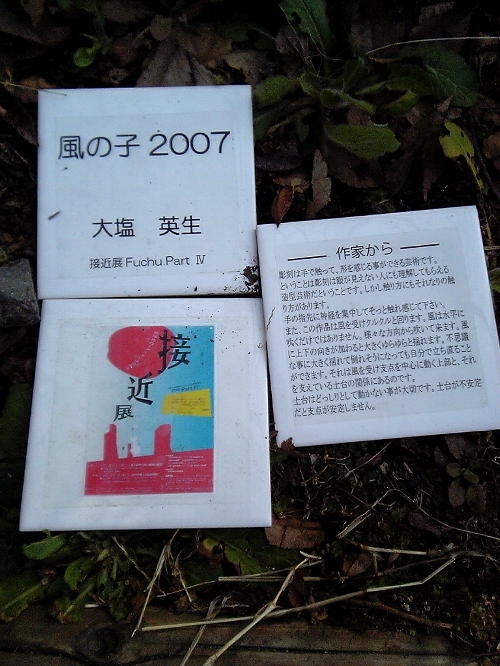 風の子 2007
大塩 英生
接近展 Fuchu Part Ⅳ
接
近
展
作家から
彫刻は手で触って、形を感じる事ができる芸術です。
ということは彫刻は眼が見えない人にも理解してもらえる
造型芸術だということです。しかし触り方にもそれなりの触
り方があります。
手の指先に神経を集中してそっと触れ感じて下さい。
また、この作品は風を受けクルクルと回ります。風は水平に
吹くだけではありません。様々な方向から吹いて来ます。風
に上下の向きが加わると大きくゆらゆらと揺れます。不思議
な事に大きく揺れて倒れそうになっても自分で立ち直ること
ができます。それは風を受け支点を中心に動く上部と、それ
を支えている土台の関係にあるのです。
土台はどっしりとして動かない事が大切です。土台が不安定
だと支点が安定しません。